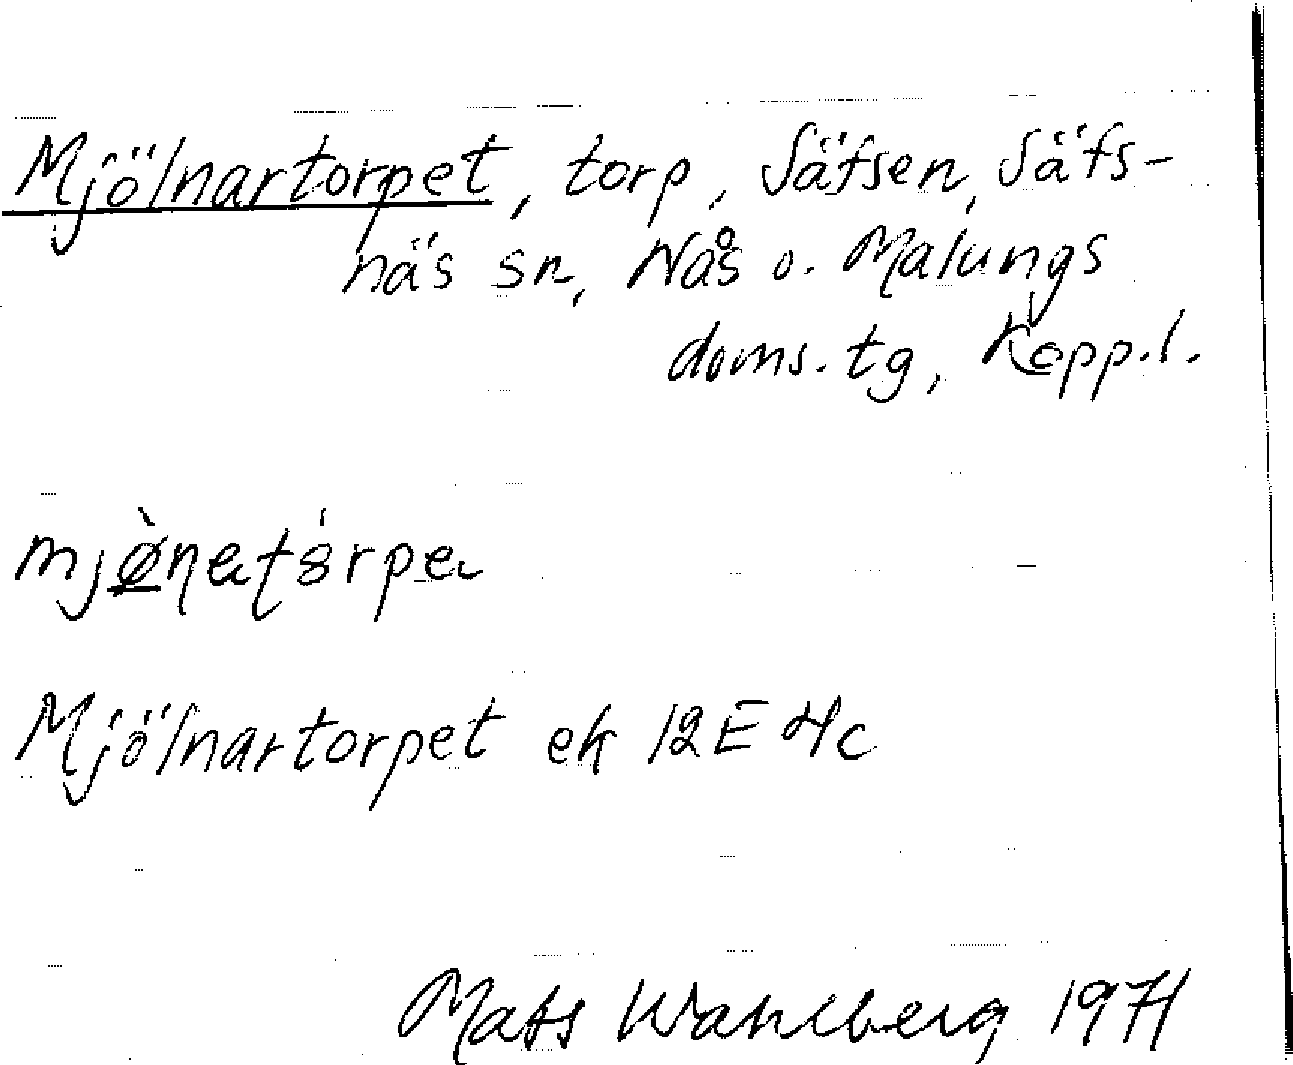 Mjölnartorpet, torp, Säfsen, Säfs-
näs sn, Nås o. Malungs
doms. tg, Kopp. l.
Mjölnartorpet ek 12E 4c
Mats Wahlberg 1971